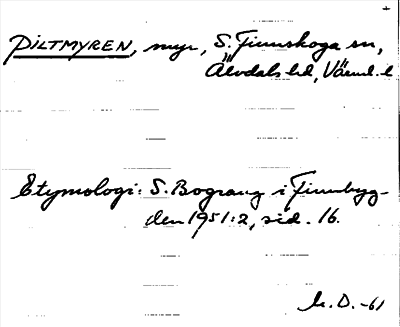 PILTMYREN, myr, S. Finnskoga sn,
Älvdals hd, Värml. l
Etymologi: S. Bograng i Finnbyg-
den 1951:2, sid. 16.
D. -61